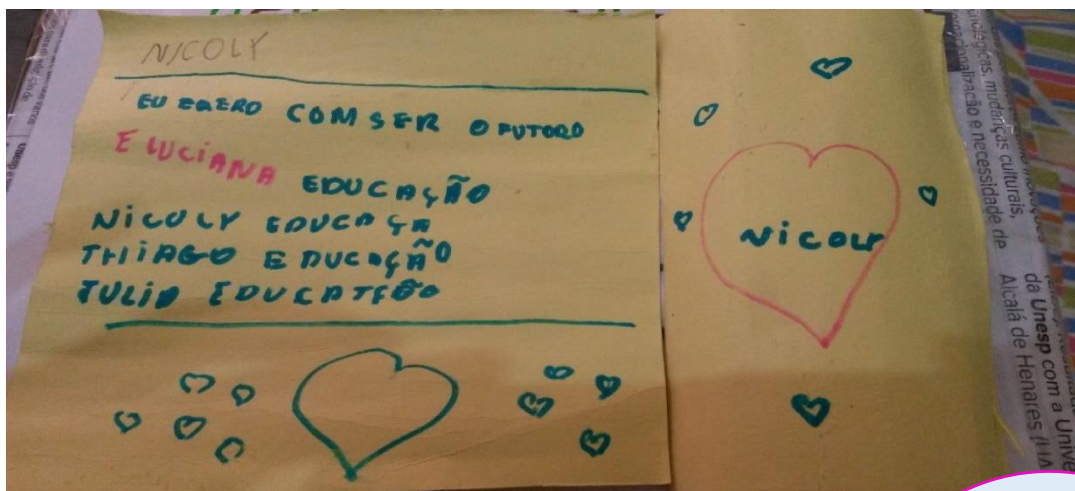 NICOLY
EU EQERO COM SER O FUTORO
E LUCIANA EDUCAÇÃO
NICOLY EDUCAÇA
THIAGO EDUCAÇÃO
NICOLY
mudanças culturais,
e necessidade de
da Unesp com a Unive
Alcalá de Henares